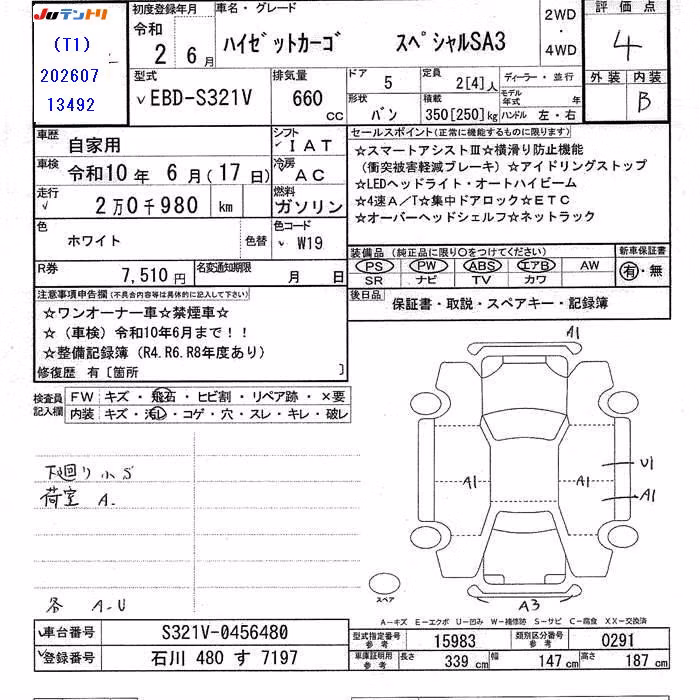 JUテントリ
(T1)
202607
13492
初度登録年月
令和
2年 6月
車名・グレード
ハイゼットカーゴ スペシャルSA3
2WD
・
4WD
評価点
4
外装 内装
B
型式
EBD-S321V
排気量
660
cc
ドア
5
定員
2[4]人
ディーラー・並行
形状
バン
積載
350[250]kg
モデル年式 年
ハンドル 左・右
車歴
自家用
シフト
IAT
車検
令和10年 6月(17日)
冷房
AC
走行
2万0千980 km
燃料
ガソリン
色
ホワイト
色替
色コード
W19
R券
7,510円
名変通知期限
月 日
セールスポイント(正常に機能するものに限ります)
☆スマートアシストⅢ☆横滑り防止機能
(衝突被害軽減ブレーキ)☆アイドリングストップ
☆LEDヘッドライト・オートハイビーム
☆4速A/T☆集中ドアロック☆ETC
☆オーバーヘッドシェルフ☆ネットラック
装備品(純正品に限り○をつけてください)
PS PW ABS エアB AW
SR ナビ TV カワ
新車保証書
有・無
後日品
保証書・取説・スペアキー・記録簿
注意事項申告欄(不具合内容等は具体的に記入して下さい)
☆ワンオーナー車☆禁煙車☆
☆(車検)令和10年6月まで!!
☆整備記録簿(R4.R6.R8年度あり)
修復歴 有[箇所 ]
検査員記入欄
FW キズ・飛石・ヒビ割・リペア跡・×要
内装 キズ・汚レ・コゲ・穴・スレ・キレ・破レ
下廻り小S
荷室 A.
各 A.U
A1
A1
A1
U1
A1
A3
スペア
A-キズ E-エクボ U-凹み W-補修跡 S-サビ C-腐食 XX-交換済
車台番号
S321V-0456480
登録番号
石川 480 す 7197
型式指定番号
参考
15983
類別区分番号
参考
0291
車庫証明用
参考
長さ 339 cm 幅 147 cm 高さ 187 cm